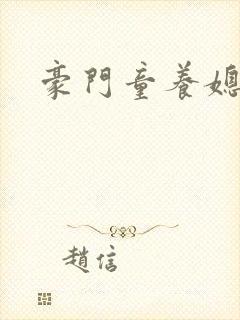 豪門童養媳
趙信